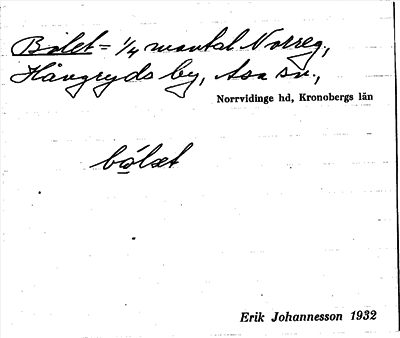 Bolet = 1/4 mantal Norreg.,
Hångryds by, Asa sn.,
Norrvidinge hd, Kronobergs län
bo̲let
Erik Johannesson 1932